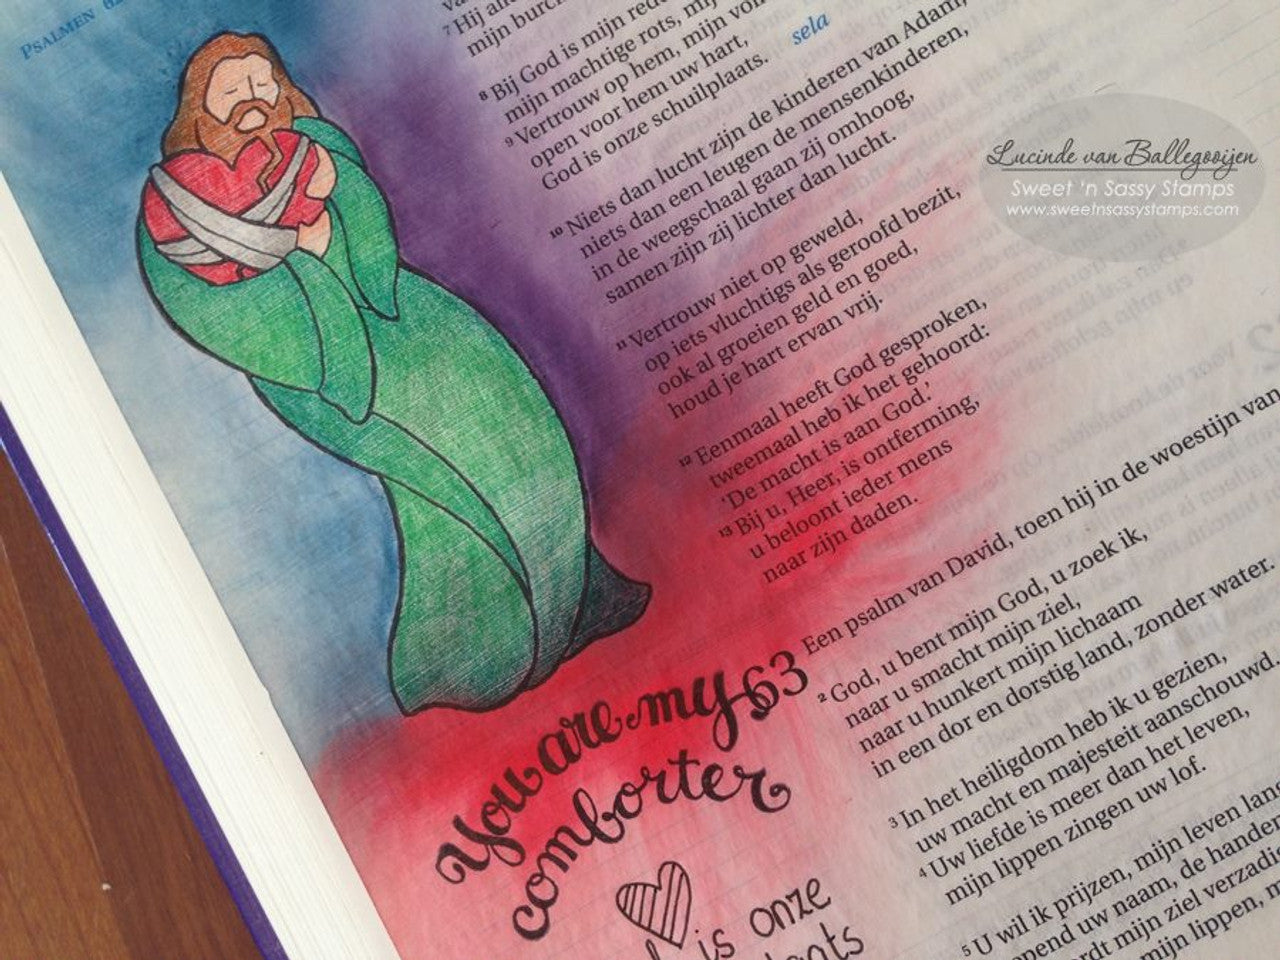 PSALMEN 62
7 Hij
mijn burch
8 Bij God is mijn red
mijn machtige rots, mij
9 Vertrouw op hem, mijn vol
open voor hem uw hart,
God is onze schuilplaats.
sela
10 Niets dan lucht zijn de kinderen van Adam,
niets dan een leugen de mensenkinderen,
in de weegschaal gaan zij omhoog,
samen zijn zij lichter dan lucht.
11 Vertrouw niet op geweld,
op iets vluchtigs als geroofd bezit,
ook al groeien geld en goed,
houd je hart ervan vrij.
12 Eenmaal heeft God gesproken,
tweemaal heb ik het gehoord:
‘De macht is aan God.’
13 Bij u, Heer, is ontferming,
u beloont ieder mens
naar zijn daden.
63
Een psalm van David, toen hij in de woestijn van
2 God, u bent mijn God, u zoek ik,
naar u smacht mijn ziel,
naar u hunkert mijn lichaam
in een dor en dorstig land, zonder water.
3 In het heiligdom heb ik u gezien,
uw macht en majesteit aanschouwd.
4 Uw liefde is meer dan het leven,
mijn lippen zingen uw lof.
5 U wil ik prijzen, mijn leven lang
opend uw naam, de handen
ordt mijn ziel verzadig
mijn lippen,
You are my
comforter
is onze
Lucinde van Ballegooijen
Sweet 'n Sassy Stamps
www.sweetnsassystamps.com